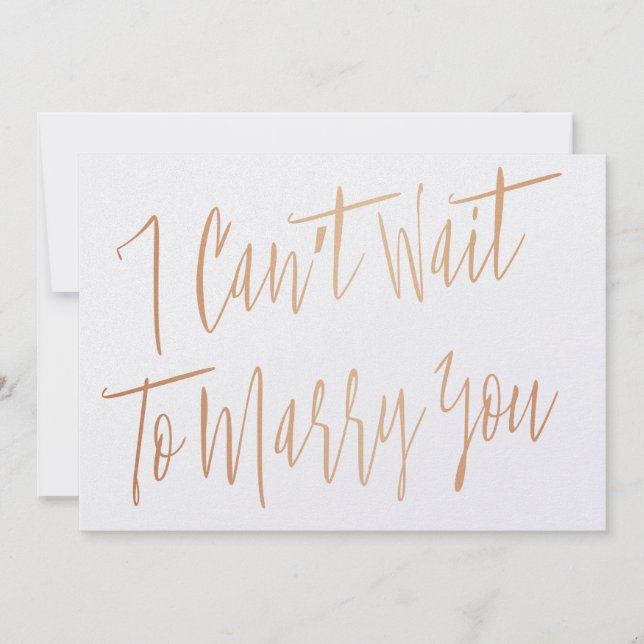 I Can't Wait
To Marry You